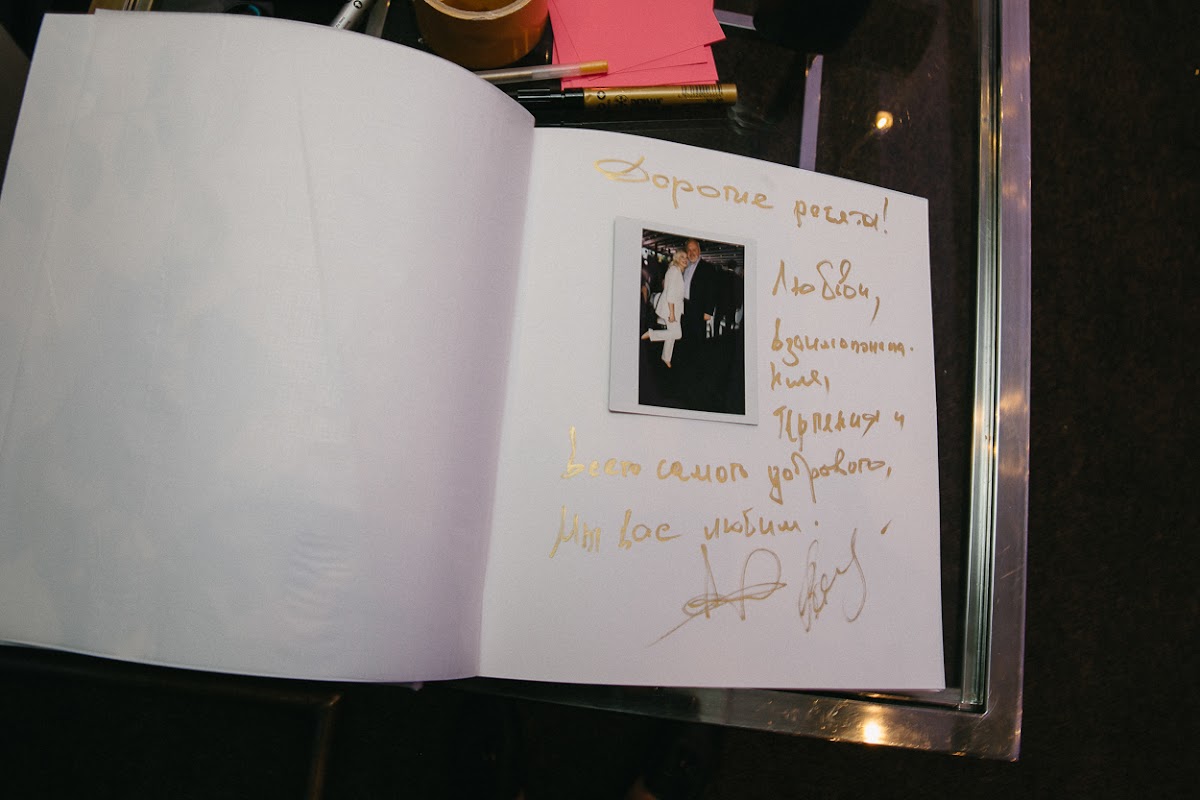 Дорогие ребята!
Любви,
взаимопонима-
ния,
терпения и
всего самого доброго,
Мы вас любим.